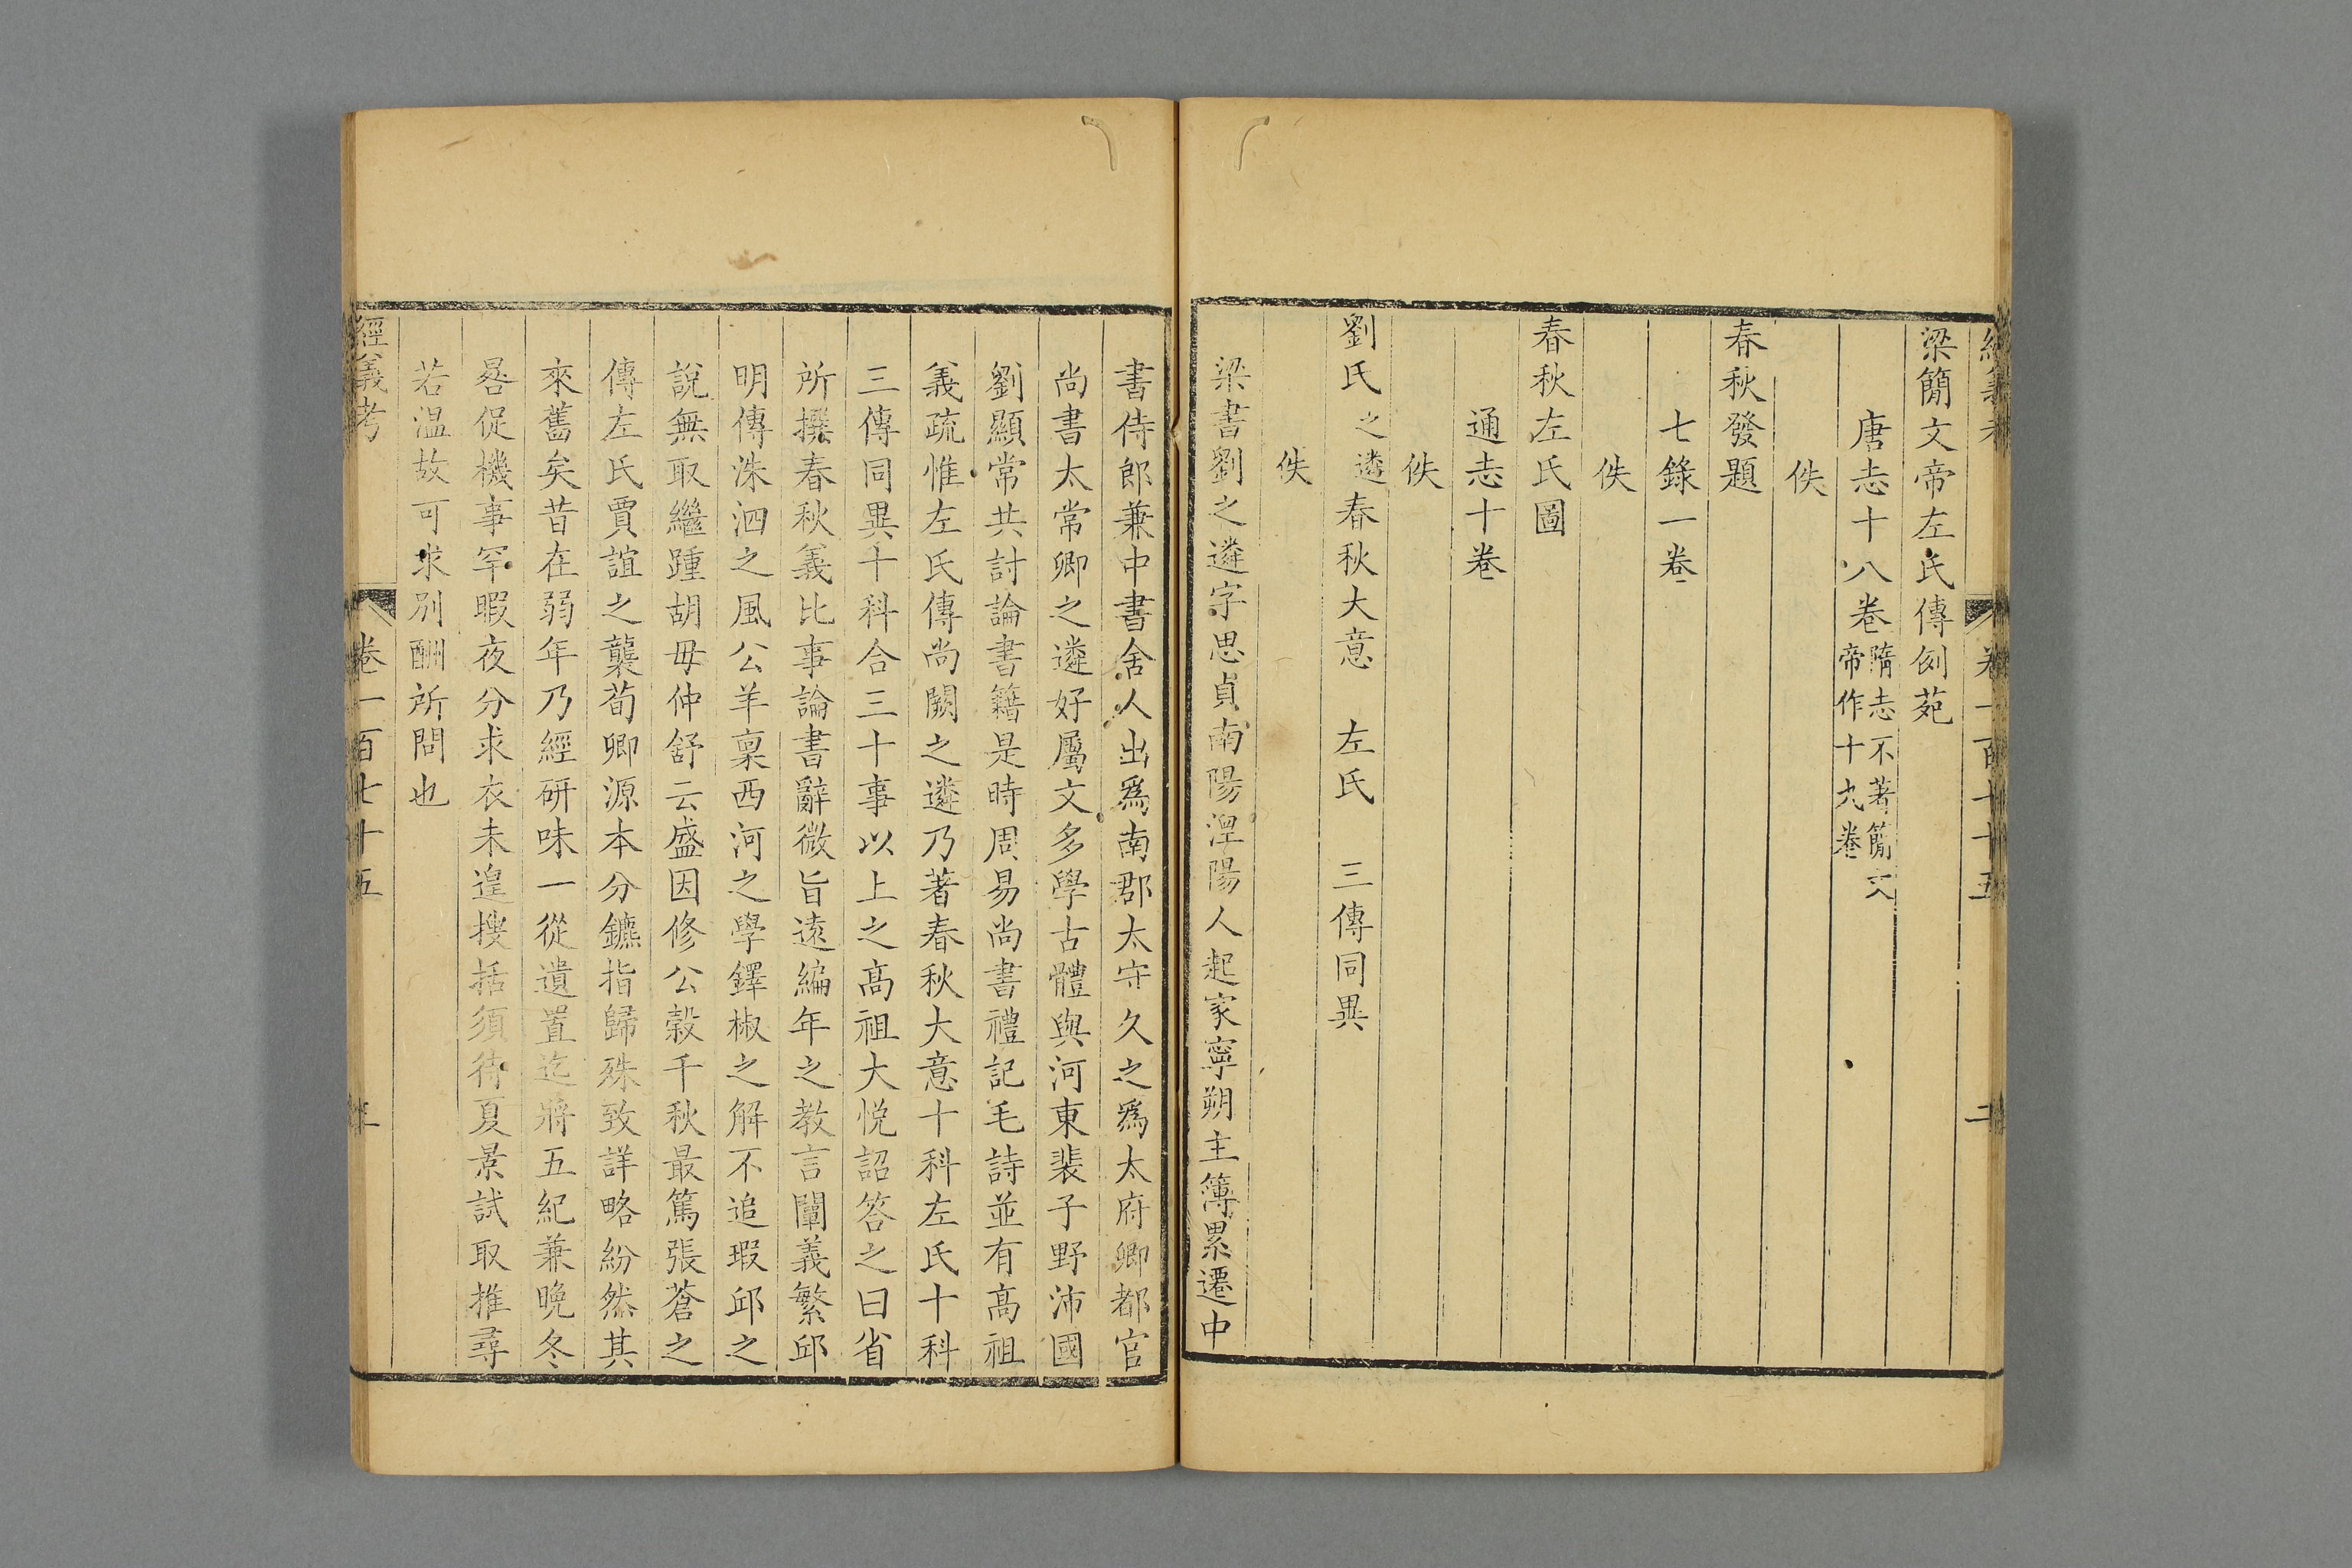 經義考 卷一百七十五 二
梁簡文帝左氏傳例苑
唐志十八卷隋志不著簡文帝作十九卷
佚
春秋發題
七錄一卷
佚
春秋左氏圖
通志十卷
佚
劉氏之遴春秋大意 左氏 三傳同異
佚
梁書劉之遴字思貞南陽湼陽人起家寧朔主簿累遷中
書侍郎兼中書舍人出爲南郡太守久之爲太府卿都官
尚書太常卿之遴好屬文多學古體與河東裴子野沛國
劉顯常共討論書籍是時周易尚書禮記毛詩並有高祖
義疏惟左氏傳尚闕之遴乃著春秋大意十科左氏十科
三傳同異十科合三十事以上之高祖大悅詔答之曰省
所撰春秋義比事論書辭微旨遠編年之教言闡義繁邱
明傳洙泗之風公羊稟西河之學鐸椒之解不追瑕邱之
說無取繼踵胡毋仲舒云盛因修公穀千秋最篤張蒼之
傳左氏賈誼之襲荀卿源本分鑣指歸殊致詳略紛然其
來舊矣昔在弱年乃經研味一從遺置迄將五紀兼晚冬
晷促機事罕暇夜分求衣未遑搜括須待夏景試取推尋
若温故可求別酬所問也
經義考 卷一百七十五